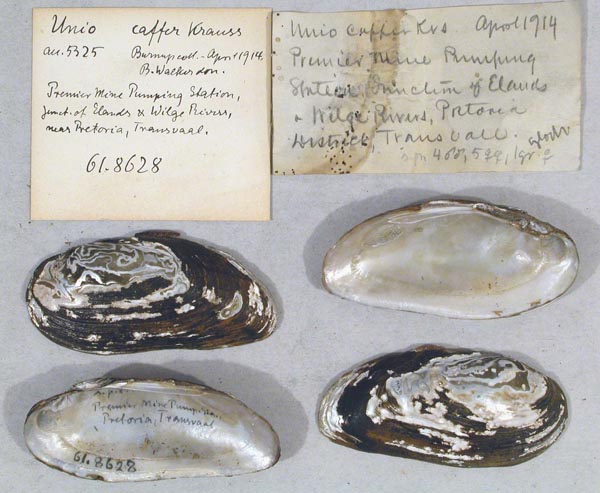 Unio caffer Krauss
au.5325 Burnup coll. - April 1914.
B. Walker don.
Premier Mine Pumping Station,
junct. of Elands & Wilge Rivers,
near Pretoria, Transvaal.
61.8628
Unio caffer Krs April 1914
Premier Mine Pumping
Station Junction of Elands
& Wilge Rivers, Pretoria
District, Transvaal.
Premier Mine Pump. Sta.
Pretoria, Transvaal
61.8628